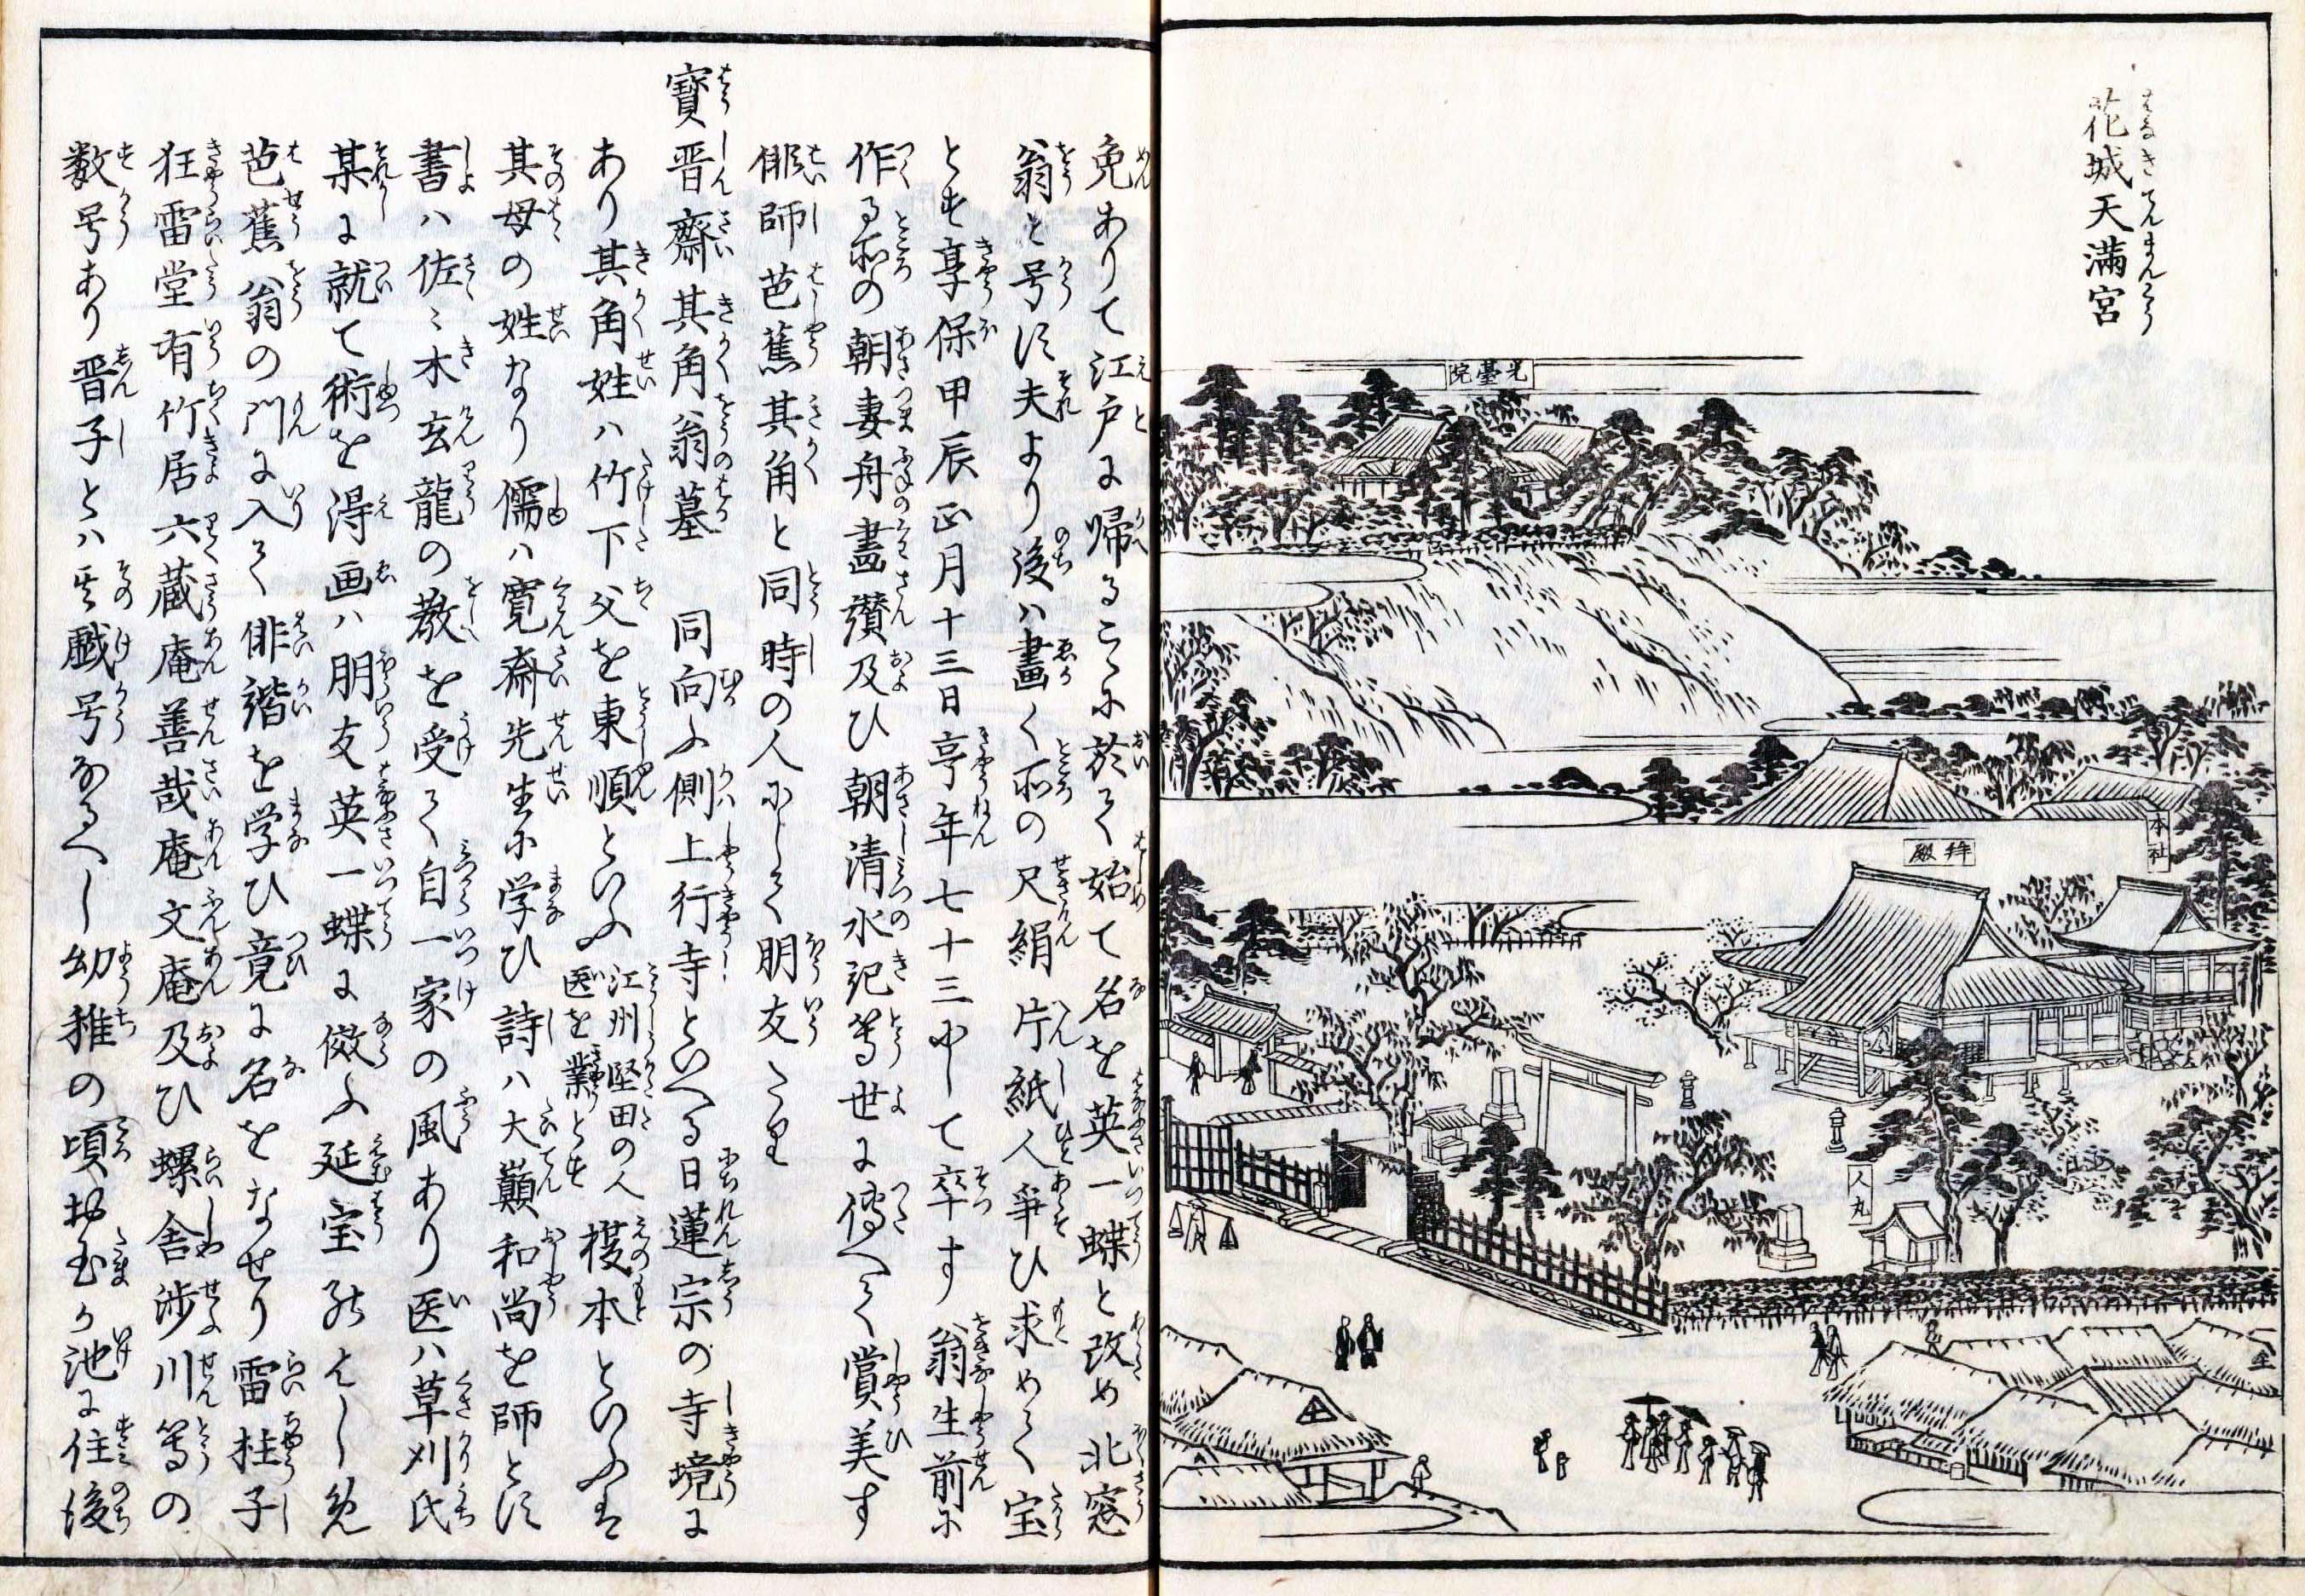 花城天満宮
はなきてんまんくう
光臺院
本社
拝殿
人丸
免ありて江戸に帰るこゝに於て始て名を英一蝶と改め北窓
翁と号す夫より後ハ畫く所の尺絹片紙人爭ひ求めて宝
とす享保甲辰正月十三日享年七十三にして卒す翁生前に
作る所の朝妻舟畵讃及ひ朝清水記等世に傳へて賞美す
俳師芭蕉其角と同時の人にして朋友たり
寶晋齋其角翁墓 同向ふ側上行寺といへる日蓮宗の寺境に
あり其角姓ハ竹下父を東順といふ江州堅田の人医を業とす榎本といふは
其母の姓なり儒ハ寛齋先生に学ひ詩ハ大巓和尚を師とす
書ハ佐々木玄龍の教を受て自一家の風あり医ハ草刈氏
某に就て術を得画ハ朋友英一蝶に傚ふ延宝のはしめ
芭蕉翁の門に入て俳諧を学ひ竟に名をなせり雷柱子
狂雷堂有竹居六蔵庵善哉庵文庵及ひ螺舎渉川等の
数号あり晋子とハ其戯号なるへし幼稚の頃お玉か池に住後